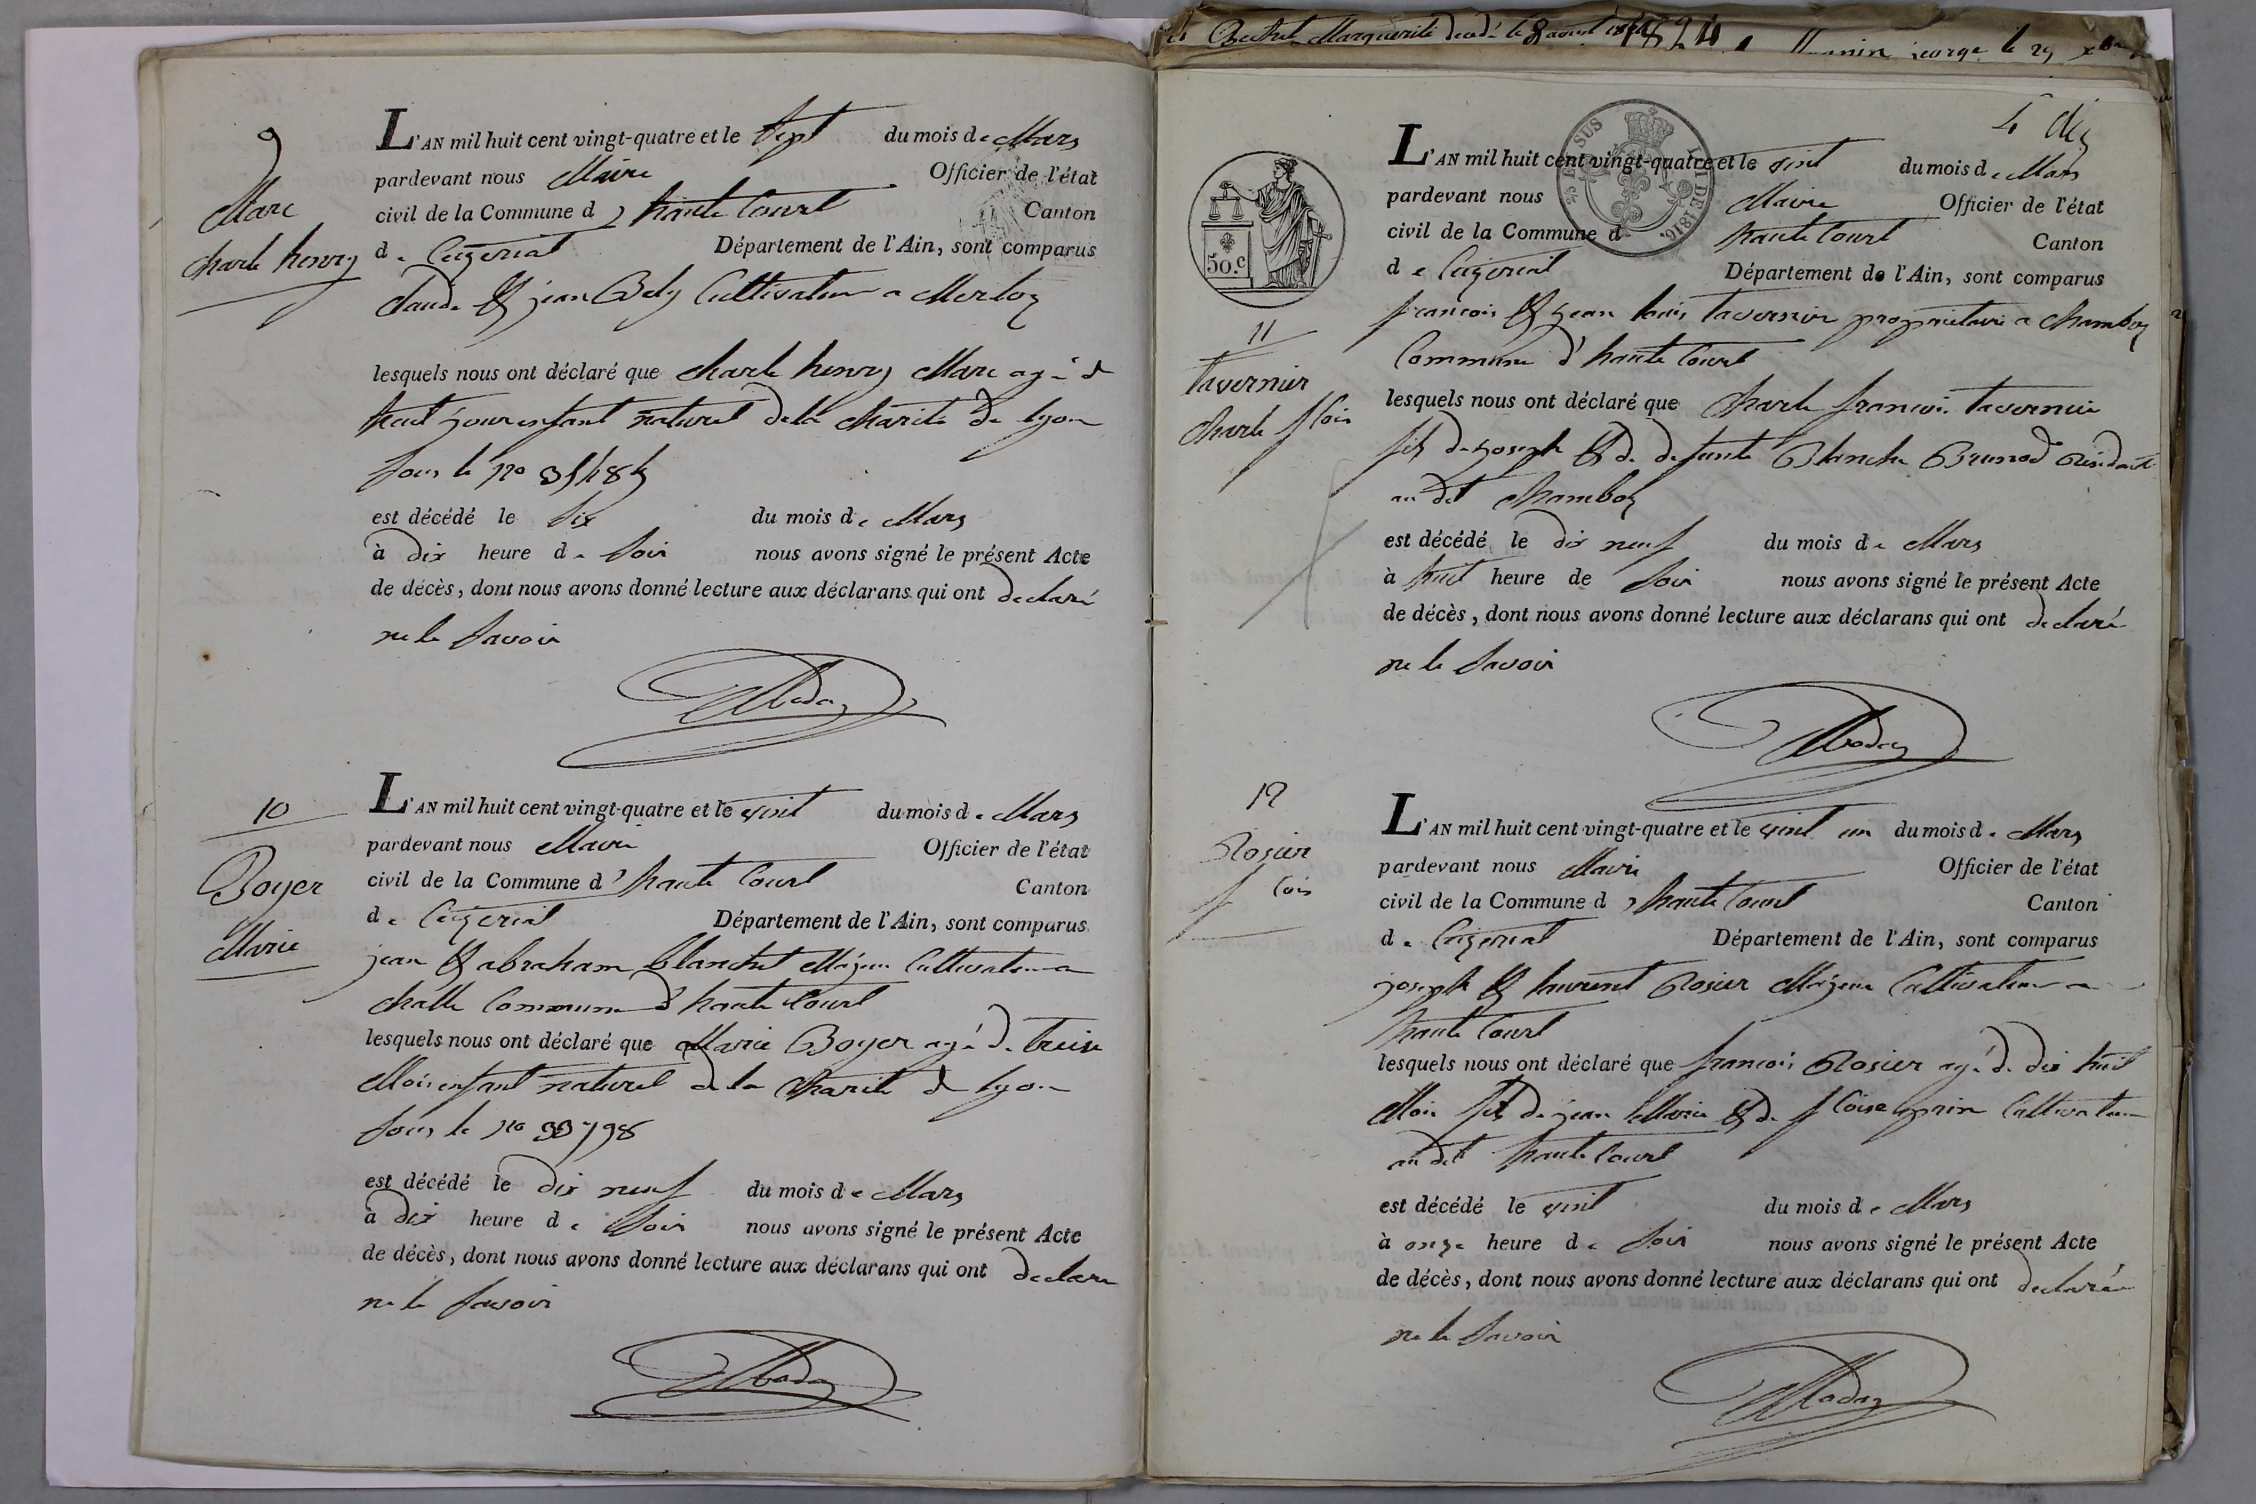 Marguerite decd. le 8 aout 1824
george le 29
9
Marc
charle henry
L'AN mil huit cent vingt-quatre et le sept du mois de Mars
pardevant nous Maire Officier de l'état
civil de la Commune d, haute Court Canton
de Ceyzeriat Département de l'Ain, sont comparus
Claude & jean Bely Cultivateur a Merloz
lesquels nous ont déclaré que charle henry Marc agé de
huit jour enfant naturel de la charité de lyon
sous le no
est décédé le six du mois de Mars
à dix heure de soir nous avons signé le présent Acte
de décès, dont nous avons donné lecture aux déclarans qui ont declaré
ne le savoir
10
Boyer
Marie
L'AN mil huit cent vingt-quatre et le vint du mois de Mars
pardevant nous Maire Officier de l'état
civil de la Commune d' haute Court Canton
de Ceyzeriat Département de l'Ain, sont comparus
jean & abraham blanchet Majeur Cultivateur a
challe Commune d'haute Court
lesquels nous ont déclaré que Marie Boyer agé de treise
Mois enfant naturel de la charité de lyon
sous le no 33798
est décédé le dix neuf du mois de Mars
à dix heure de soir nous avons signé le présent Acte
de décès, dont nous avons donné lecture aux déclarans qui ont declaré
ne le savoir
50.c
LOI DE 1816.
11
tavernier
charle fcois
L'AN mil huit cent vingt-quatre et le vint du mois de Mars
pardevant nous Maire Officier de l'état
civil de la Commune d haute Court Canton
de Ceyzeriat Département de l'Ain, sont comparus
francois & jean louis tavernier propriétaire a chamboz
Commune d'haute Court
lesquels nous ont déclaré que charle francois tavernier
fils de joseph & de defunte Blanche Brunod résidant
au dit chamboz
est décédé le dix neuf du mois de Mars
à huit heure de soir nous avons signé le présent Acte
de décès, dont nous avons donné lecture aux déclarans qui ont declaré
ne le savoir
12
Rosier
fcois
L'AN mil huit cent vingt-quatre et le vint un du mois de Mars
pardevant nous Maire Officier de l'état
civil de la Commune d, haute Court Canton
de Ceyzeriat Département de l'Ain, sont comparus
joseph & laurent Rosier Majeur Cultivateur a
haute Court
lesquels nous ont déclaré que francois Rosier agé de dix huit
Mois fils de jean Marie & de fcoise Cultivateur
au dit haute Court
est décédé le vint du mois de Mars
à onze heure de soir nous avons signé le présent Acte
de décès, dont nous avons donné lecture aux déclarans qui ont declaré
ne le savoir